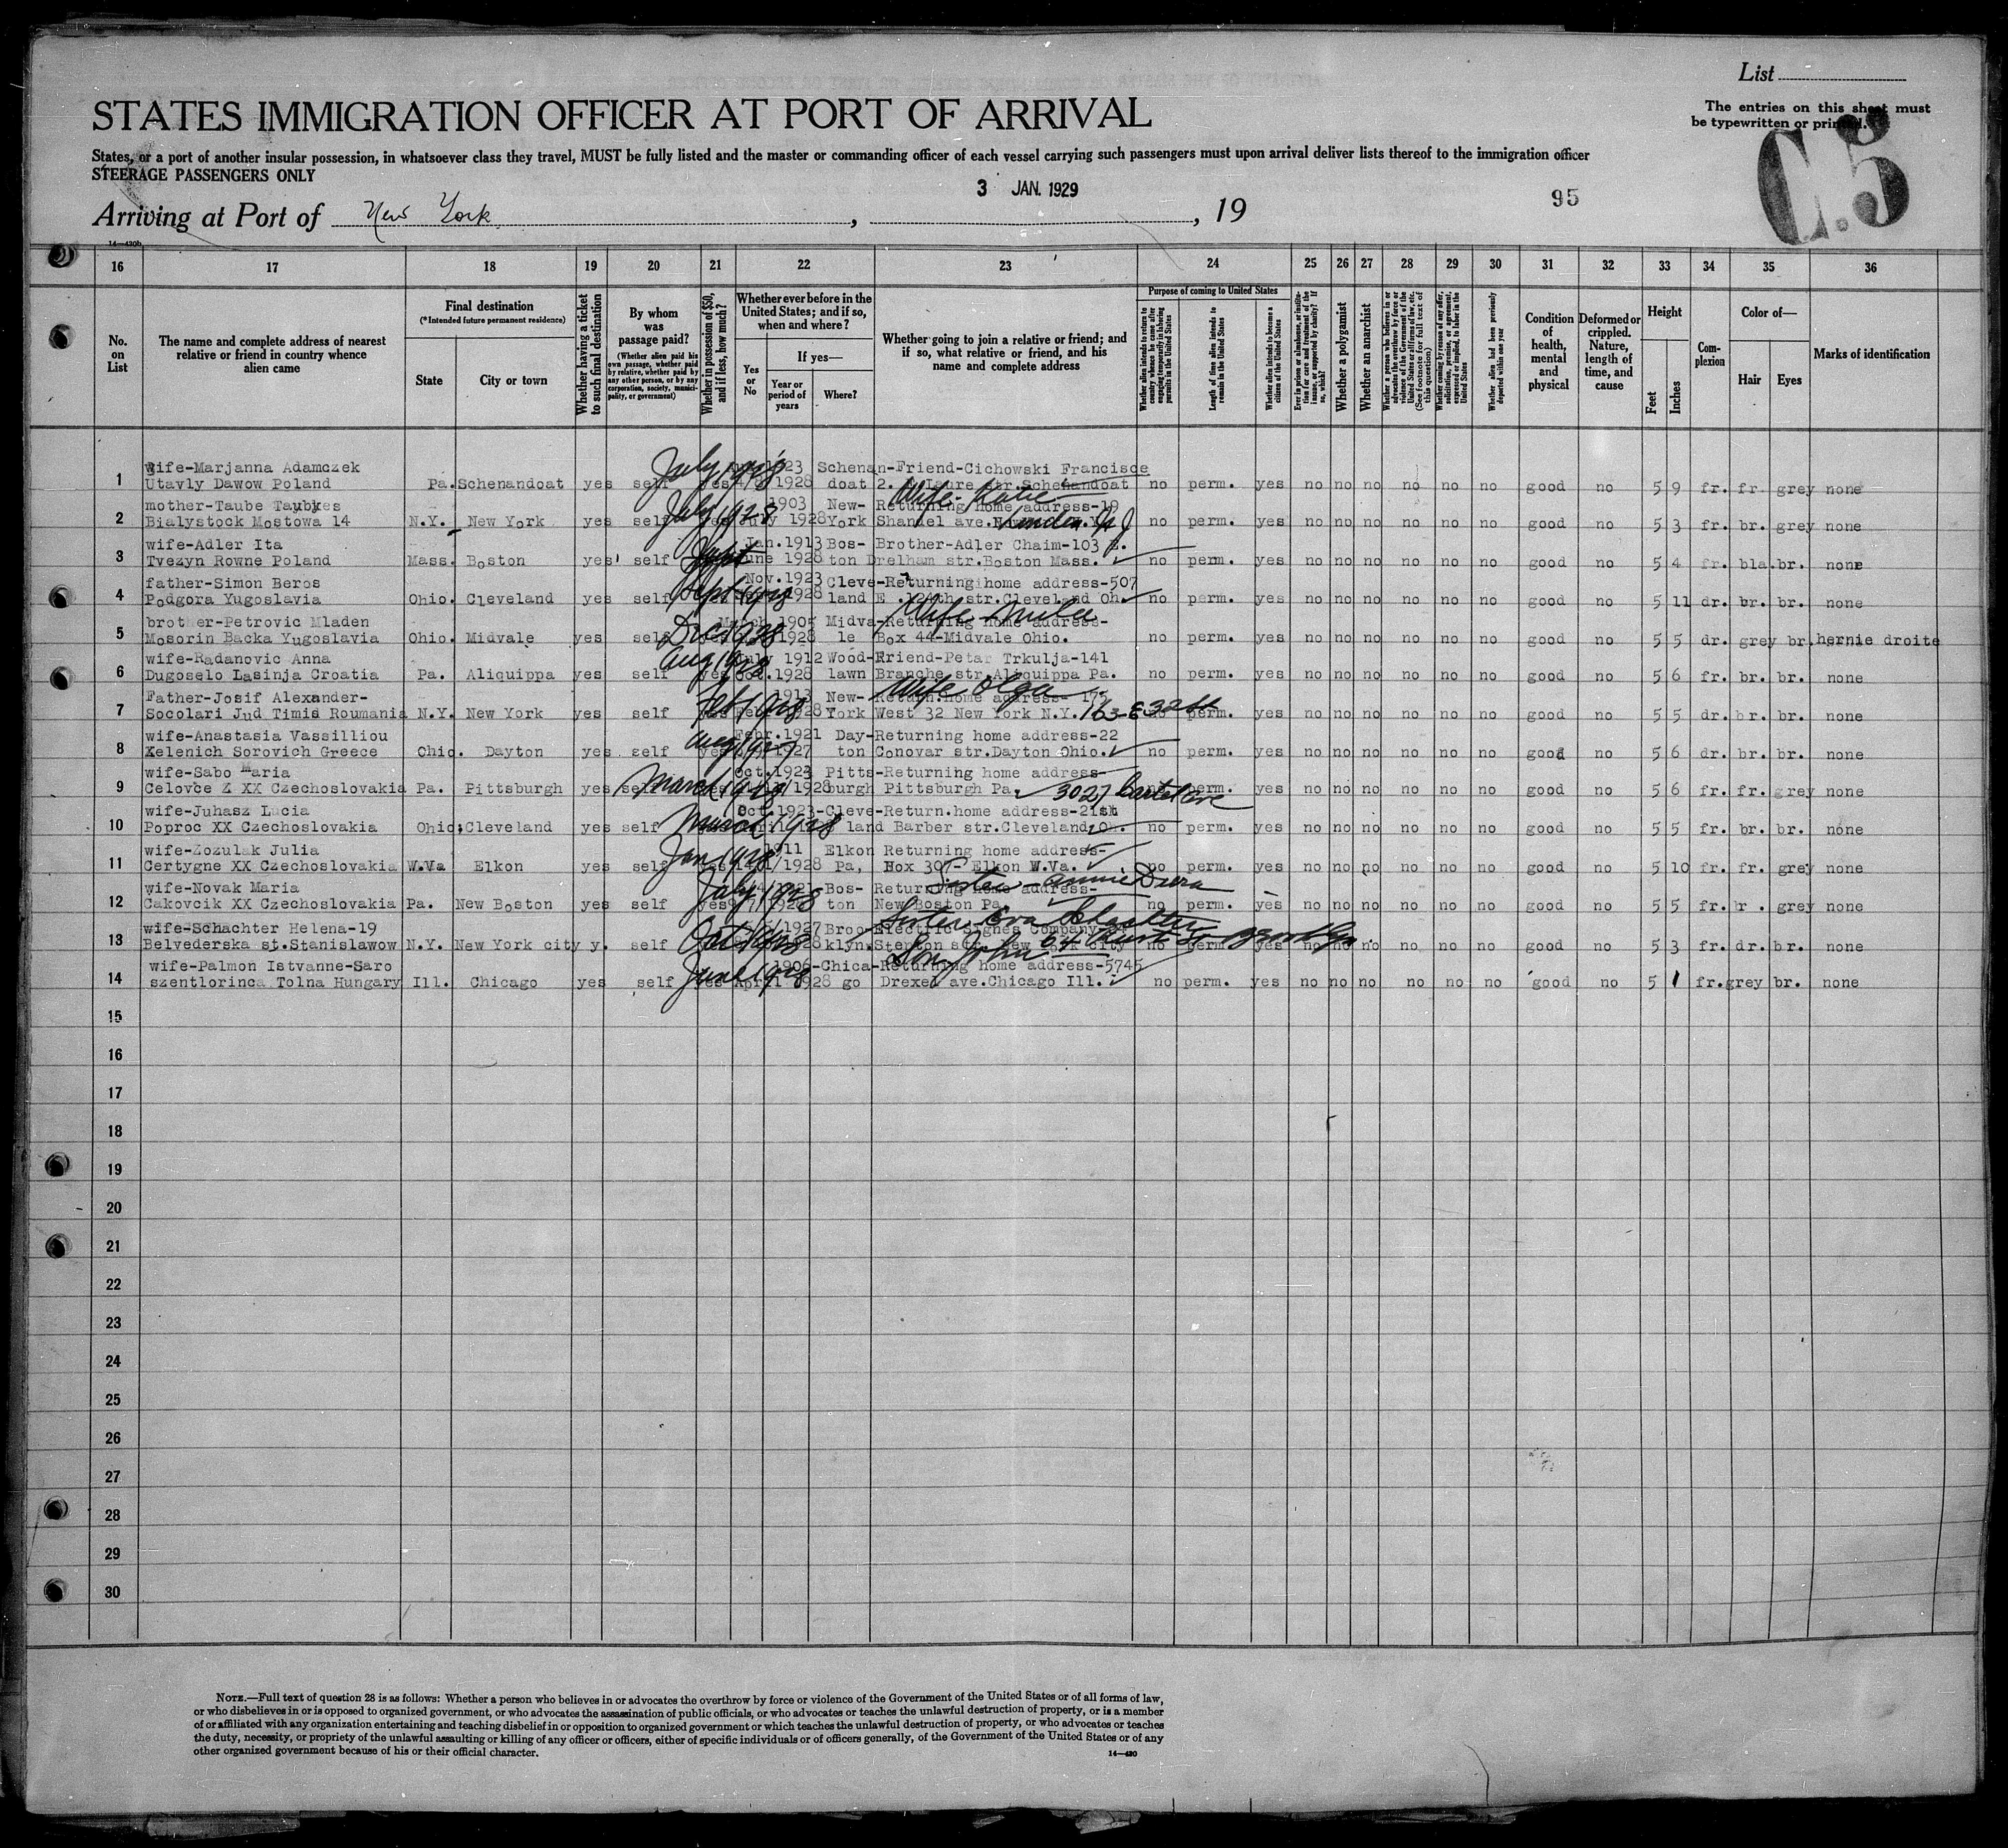 List
STATES IMMIGRATION OFFICER AT PORT OF ARRIVAL
The entries on this sheet must
be typewritten or printed.
C.5
States, or a port of another insular possession, in whatsoever class they travel, MUST be fully listed and the master or commanding officer of each vessel carrying such passengers must upon arrival deliver lists thereof to the immigration officer
STEERAGE PASSENGERS ONLY
3 JAN. 1929
95
Arriving at Port of New York , , 19
14—430b
16 17 18 19 20 21 22 23 24 25 26 27 28 29 30 31 32 33 34 35 36
No. on List
The name and complete address of nearest relative or friend in country whence alien came
Final destination
(*Intended future permanent residence)
State
City or town
Whether having a ticket to such final destination
By whom was passage paid?
(Whether alien paid his own passage, whether paid by relative, whether paid by any other person, or by any corporation, society, municipality, or government)
Whether in possession of $50, and if less, how much?
Whether ever before in the United States; and if so, when and where?
Yes or No
If yes—
Year or period of years
Where?
Whether going to join a relative or friend; and if so, what relative or friend, and his name and complete address
Purpose of coming to United States
Whether alien intends to return to country whence he came after engaging temporarily in laboring pursuits in the United States
Length of time alien intends to remain in the United States
Whether alien intends to become a citizen of the United States
Ever in prison or almshouse, or institution for care and treatment of the insane, or supported by charity? If so, which?
Whether a polygamist
Whether an anarchist
Whether a person who believes in or advocates the overthrow by force or violence of the Government of the United States or all forms of law, etc. (See footnote for full text of this question)
Whether coming by reason of any offer, solicitation, promise, or agreement, expressed or implied, to labor in the United States
Whether alien had been previously deported within one year
Condition of health, mental and physical
Deformed or crippled. Nature, length of time, and cause
Height
Feet
Inches
Complexion
Color of—
Hair
Eyes
Marks of identification
wife-Marjanna Adamczek July 1928 1923 Schenan-Friend-Cichowski Francisce
1 Utavly Dawow Poland Pa. Schenandoat yes self yes 1928 doat 2. str.Schenandoat no perm. yes no no no no no no good no 5 9 fr. fr. grey none
mother-Taube Taubkes July 1928 1903 New- Returning home address-19 Wife-Katie
2 Bialystock Mostowa 14 N.Y. New York yes self July 1928 York Shandel ave. Linden N J no perm. yes no no no no no no good no 5 3 fr. br. grey none
wife-Adler Ita Jan.1913 Bos- Brother-Adler Chaim-103 E.
3 Tvezyn Rowne Poland Mass. Boston yes self June 1928 ton Drelham str.Boston Mass. no perm. yes no no no no no no good no 5 4 fr. bla. br. none
father-Simon Beros Sept 1928 Nov.1923 Cleve-Returning home address-507
4 Podgora Yugoslavia Ohio. Cleveland yes self 1928 land E .120th str.Cleveland Oh. no perm. yes no no no no no no good no 5 11 dr. br. br. none
brother-Petrovic Mladen Dec 1928 March 1905 Midva-Returning home address- Wife
5 Mosorin Backa Yugoslavia Ohio. Midvale yes self 1928 le Box 44-Midvale Ohio. no perm. yes no no no no no no good no 5 5 dr. grey br. hernie droite
wife-Radanovic Anna Aug 1928 July 1912 Wood-Friend-Petar Trkulja-141
6 Dugoselo Lasinja Croatia Pa. Aliquippa yes self yes Oct.1928 lawn Branche str.Aliquippa Pa. no perm. yes no no no no no no good no 5 6 fr. br. br. none
Father-Josif Alexander- Feb 1928 1913 New- Return.home address- 175 Wife Olga
7 Socolari Jud Timis Roumania N.Y. New York yes self yes 1928 York West 32 New York N.Y. 163-E 32 st no perm. yes no no no no no no good no 5 5 dr. br. br. none
wife-Anastasia Vassilliou Aug 1927 Febr.1921 Day-Returning home address-22
8 Kelenich Sorovich Greece Ohio. Dayton yes self yes 1927 ton Conovar str.Dayton Ohio. no perm. yes no no no no no no good no 5 6 dr. br. br. none
wife-Sabo Maria March 1928 Oct.1923 Pitts-Returning home address-
9 Celovce Z XX Czechoslovakia Pa. Pittsburgh yes self 1928 burgh Pittsburgh Pa. 3027 ave no perm. yes no no no no no no good no 5 6 fr. fr. grey none
wife-Juhasz Lucia March 1928 Oct.1923-Cleve-Return.home address-21st
10 Poproc XX Czechoslovakia Ohio; Cleveland yes self April land Barber str.Cleveland Oh. no perm. yes no no no no no no good no 5 5 fr. br. br. none
wife-Zozulak Julia Jan 1928 1911 Elkon Returning home address-
11 Certygne XX Czechoslovakia W.Va Elkon yes self yes 1928 Pa, Box 305- Elkon W.Va. no perm. yes no no no no no no good no 5 10 fr. fr. grey none
wife-Novak Maria July 1928 1921 Bos- Returning home address- Sister-Annie
12 Cakovcik XX Czechoslovakia Pa. New Boston yes self yes 1928 ton New Boston Pa. no perm. yes no no no no no no good no 5 5 fr. br. grey none
wife-Schachter Helena-19 Oct 1928 1927 Broo-Electric Signes Company- Sister Eva Schachter
13 Belvederska st.Stanislawow N.Y. New York city y. self 1928 klyn. str. New York city 64 no perm. yes no no no no no no good no 5 3 fr. dr. br. none
wife-Palmon Istvanne-Saro June 1928 1906-Chica-Returning home address-5745 Son John
14 szentlorinca Tolna Hungary Ill. Chicago yes self yes April 1928 go Drexel ave.Chicago Ill. no perm. yes no no no no no no good no 5 1 fr. grey br. none
15
16
17
18
19
20
21
22
23
24
25
26
27
28
29
30
NOTE.—Full text of question 28 is as follows: Whether a person who believes in or advocates the overthrow by force or violence of the Government of the United States or of all forms of law,
or who disbelieves in or is opposed to organized government, or who advocates the assassination of public officials, or who advocates or teaches the unlawful destruction of property, or is a member
of or affiliated with any organization entertaining and teaching disbelief in or opposition to organized government or which teaches the unlawful destruction of property, or who advocates or teaches
the duty, necessity, or propriety of the unlawful assaulting or killing of any officer or officers, either of specific individuals or of officers generally, of the Government of the United States or of any
other organized government because of his or their official character.
14—430